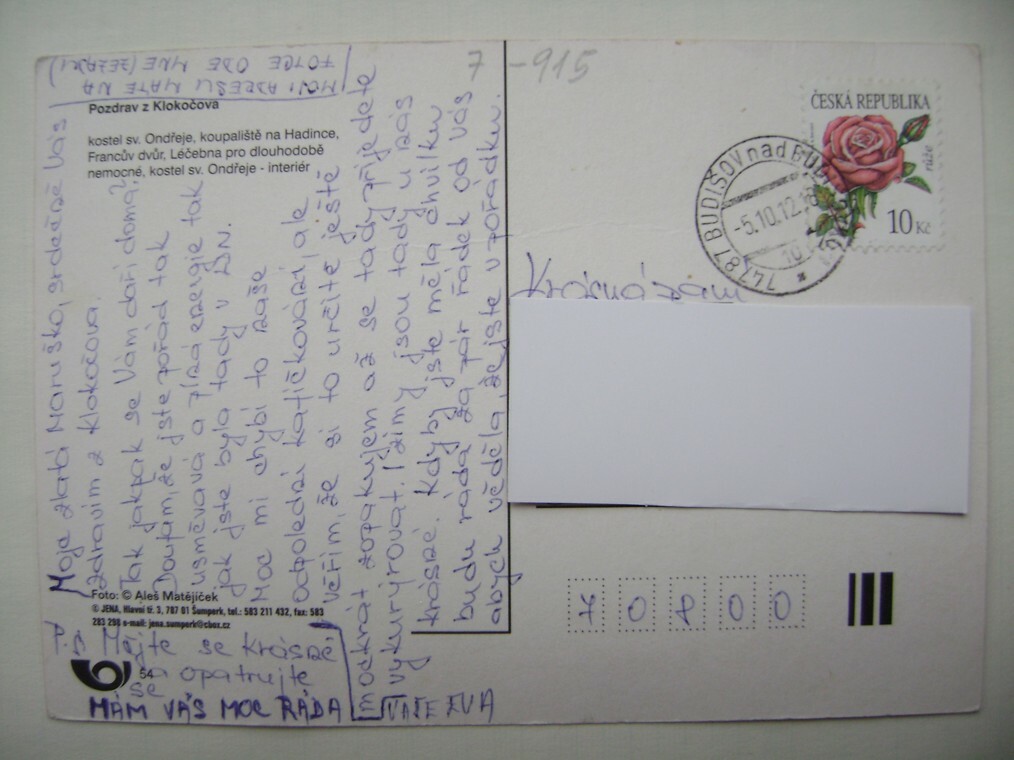 7-915
MOJI ADRESU MÁTE NA
FOTCE ODE MNE (ZEZADU)
Pozdrav z Klokočova
kostel sv. Ondřeje, koupaliště na Hadince,
Francův dvůr, Léčebna pro dlouhodobě
nemocné, kostel sv. Ondřeje - interiér
Moje zlatá Maruško, srdečně Vás
zdravím z Klokočova.
Tak jakpak se Vám daří doma?
Doufám, že jste pořád tak
usměvavá a plná energie tak
jak jste byla tady v DN.
Moc mi chybí to naše
odpolední kafíčkování, ale
věřím, že si to určitě ještě
jednou zopakujem až se tady přijedete
vykurýrovat. I zimy jsou tady u nás
krásné. Kdyby jste měla chvilku
budu ráda za pár řádek od Vás
abych věděla, že jste v pořádku.
VAŠE EVA
P.S Mějte se krásně
a opatrujte
se
MÁM VÁS MOC RÁDA
Foto: © Aleš Matějíček
© JENA, Hlavní tř. 3, 787 01 Šumperk, tel.: 583 211 432, fax: 583
283 298 e-mail: jena.sumperk@cbox.cz
54
ČESKÁ REPUBLIKA
růže
10 Kč
747 87 BUDIŠOV nad BUD
-5.10.12
Krásná paní
7 0 8 0 0